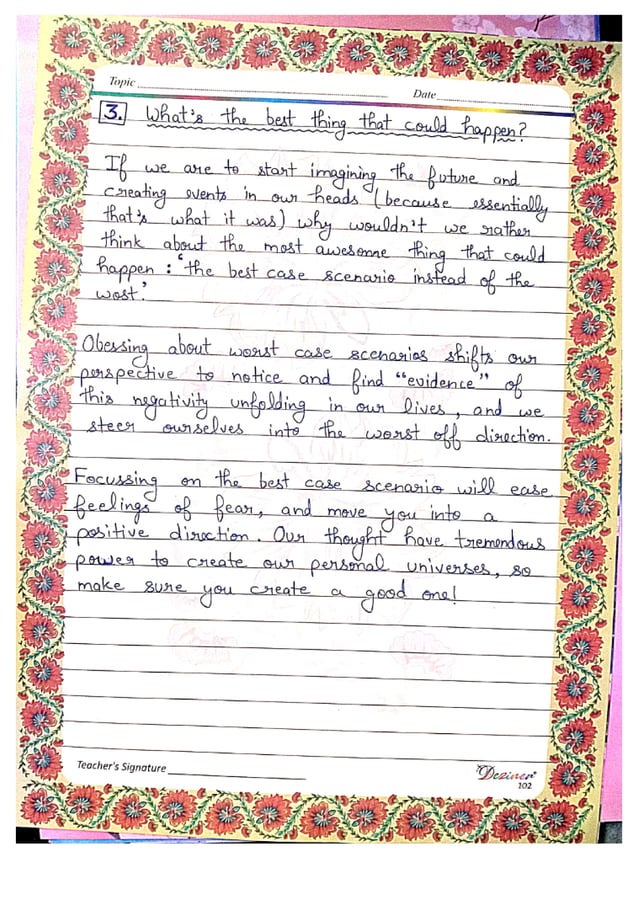 Topic
Date
3. What's the best thing that could happen?
If we are to start imagining the future and
creating events in our heads (because essentially
that's what it was) why wouldn't we rather
think about the most awesome thing that could
happen : 'the best case scenario instead of the
wost.'
Obessing about worst case scenarios shifts our
perspective to notice and find "evidence" of
this negativity unfolding in our lives, and we
steer ourselves into the worst off direction.
Focussing on the best case scenario will ease
feelings of fear, and move you into a
positive direction. Our thought have tremendous
power to create our personal universes, so
make sure you create a good one!
Teacher's Signature
Deziner
102